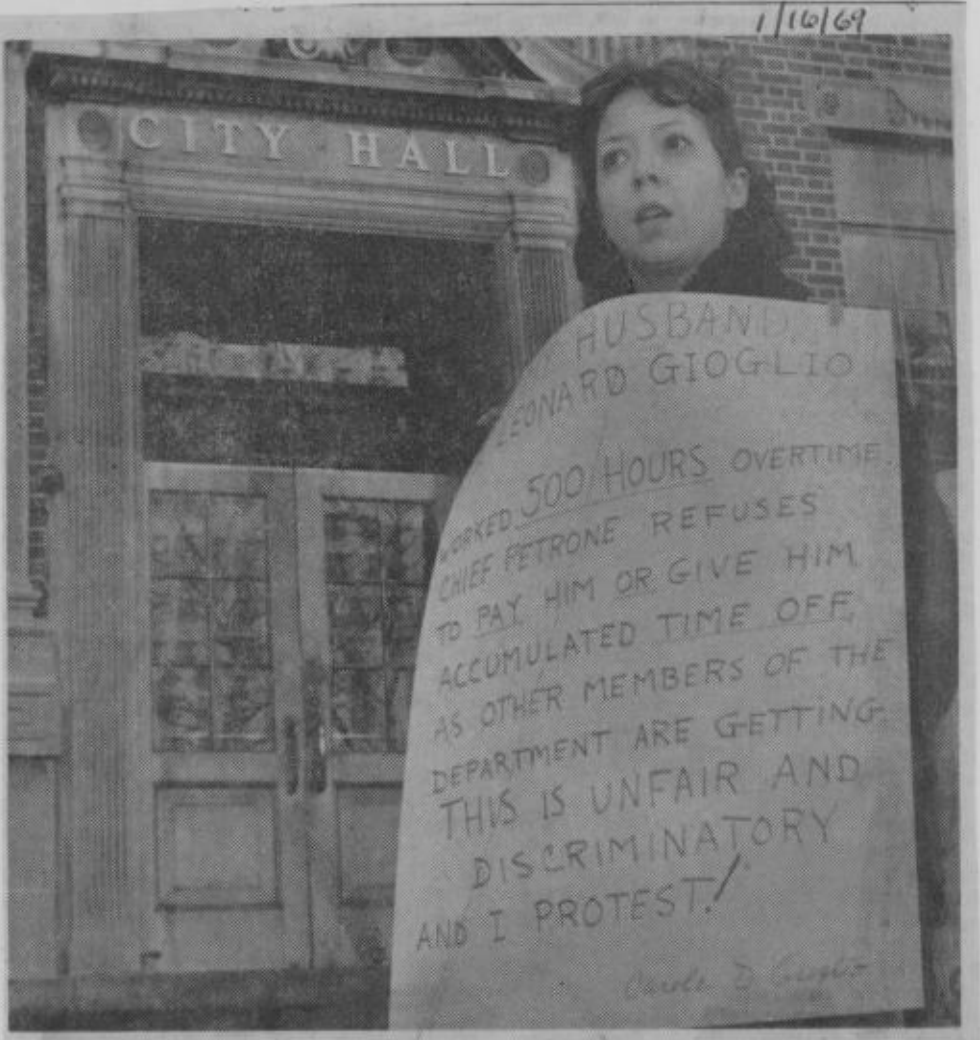 1/16/69
CITY HALL
HUSBAND,
LEONARD GIOGLIO
WORKED 500 HOURS OVERTIME.
CHIEF PETRONE REFUSES
TO PAY HIM OR GIVE HIM
ACCUMULATED TIME OFF,
AS OTHER MEMBERS OF THE
DEPARTMENT ARE GETTING.
THIS IS UNFAIR AND
DISCRIMINATORY
AND I PROTEST!
Carole D. Gioglio